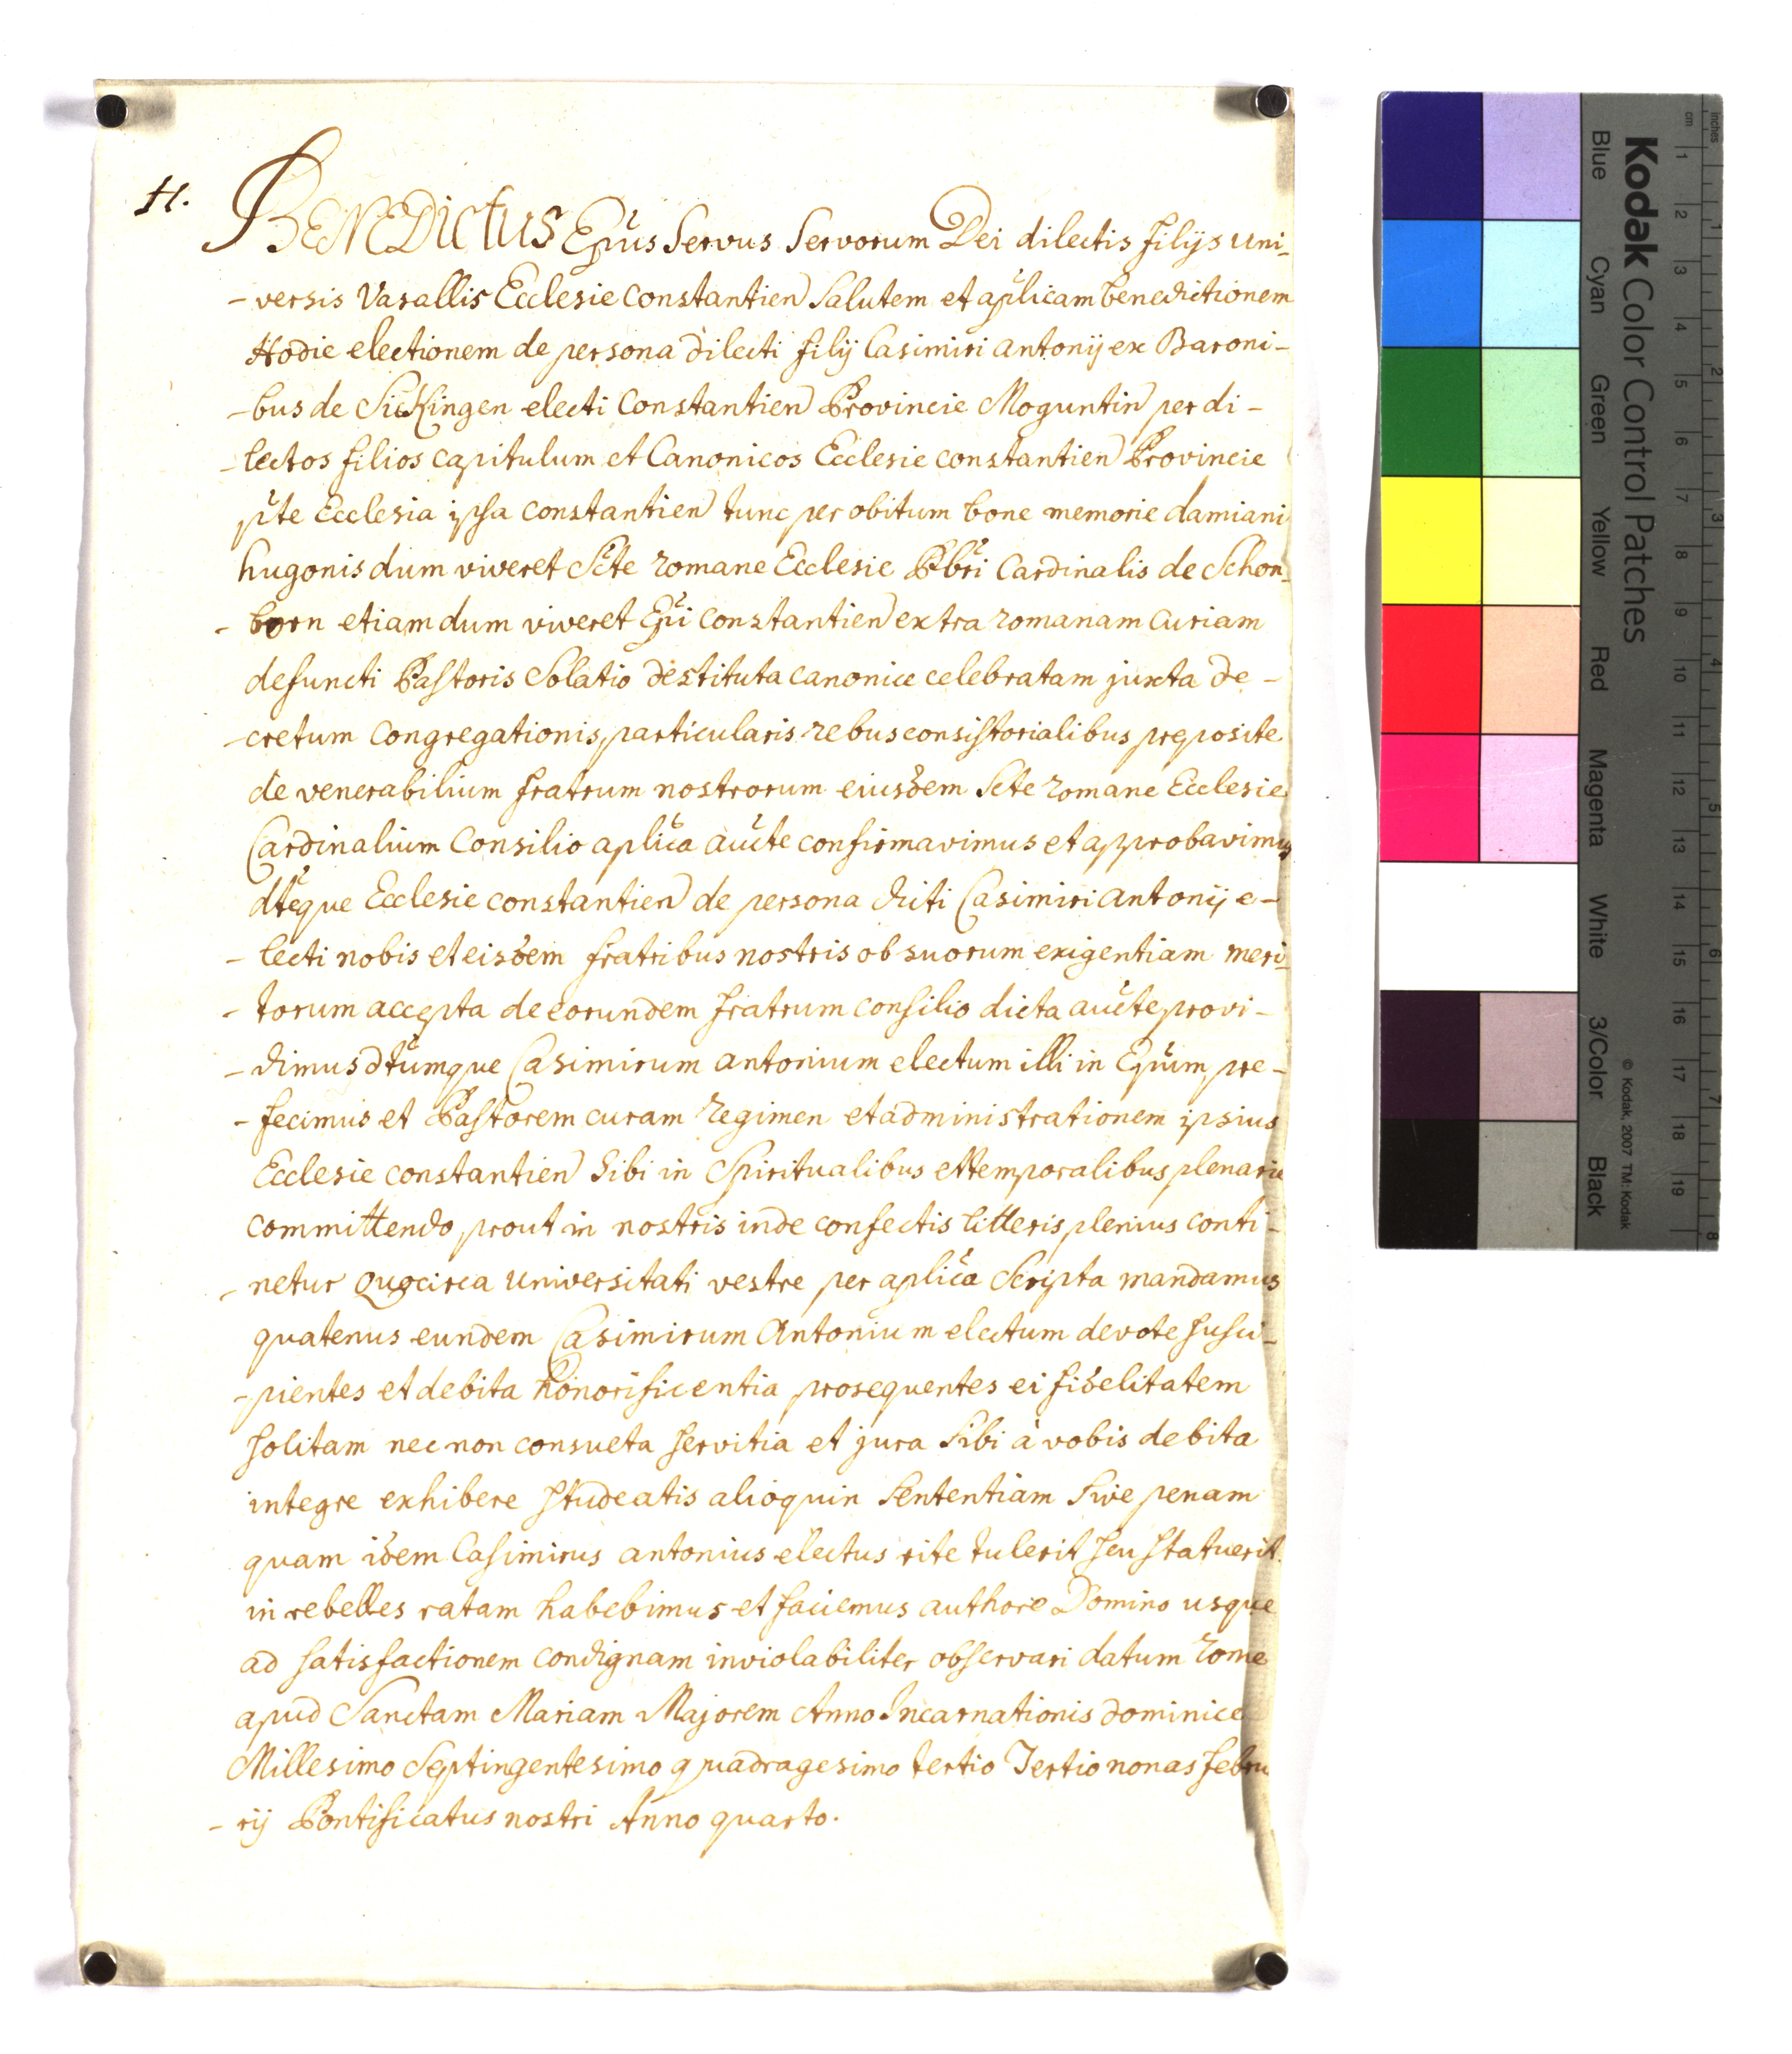 H.
BENEDictus Epus Servus Servorum Dei dilectis filijs uni-
- versis Vasallis Ecclesie Constantien Salutem et aplicam benedictionem
Hodie electionem de persona dilecti filij Casimiri antonij ex Baroni-
- bus de Sickingen electi Constantien Provincie Moguntin per di-
- lectos filios capitulum et Canonicos Ecclesie constantien Provincie
pte Ecclesia ipsa constantien tunc per obitum bone memorie damiani
hugonis dum viveret Scte romane Ecclesie Pbri Cardinalis de Schon-
- born etiam dum viveret Epi constantien extra romanam curiam
defuncti Pastoris Solatio destituta canonice celebratam juxta de-
- cretum Congregationis particularis rebus consistorialibus preposite
de venerabilium fratrum nostrorum eiusdem Scte romane Ecclesie
Cardinalium Consilio aplica aucte confirmavimus et approbavimus
dteque Ecclesie constantien de persona dicti Casimiri antonij e-
- lecti nobis et eisdem fratribus nostris ob suorum exigentiam meri-
- torum accepta de eorundem fratrum consilio dicta aucte provi-
- dimus dtumque Casimirum antonium electum illi in Epum pre-
- fecimus et Pastorem curam regimen et administrationem ipsius
Ecclesie constantien Sibi in Spiritualibus et temporalibus plenarie
committendo prout in nostris inde confectis litteris plenius conti-
- netur quocirca universitati vestre per aplica Scripta mandamus
quatenus eundem Casimirum Antonium electum devote susci-
- pientes et debita honorificentia prosequentes ei fidelitatem
solitam nec non consueta servitia et jura Sibi à vobis debita
integre exhibere studeatis alioquin Sententiam Sive penam
quam idem Casimirus antonius electus rite tulerit seu statuerit
in rebelles ratam habebimus et faciemus authore Domino usque
ad satisfactionem condignam inviolabiliter observari datum rome
apud Sanctam Mariam Majorem Anno Incarnationis dominice
Millesimo Septingentesimo quadragesimo tertio Tertio nonas febru
- rij Pontificatus nostri Anno quarto.
Kodak Color Control Patches
Blue Cyan Green Yellow Red Magenta White 3/Color Black
© Kodak, 2007 TM: Kodak
cm 1 2 3 4 5 6 7 8 9 10 11 12 13 14 15 16 17 18 19
inches 1 2 3 4 5 6 7 8